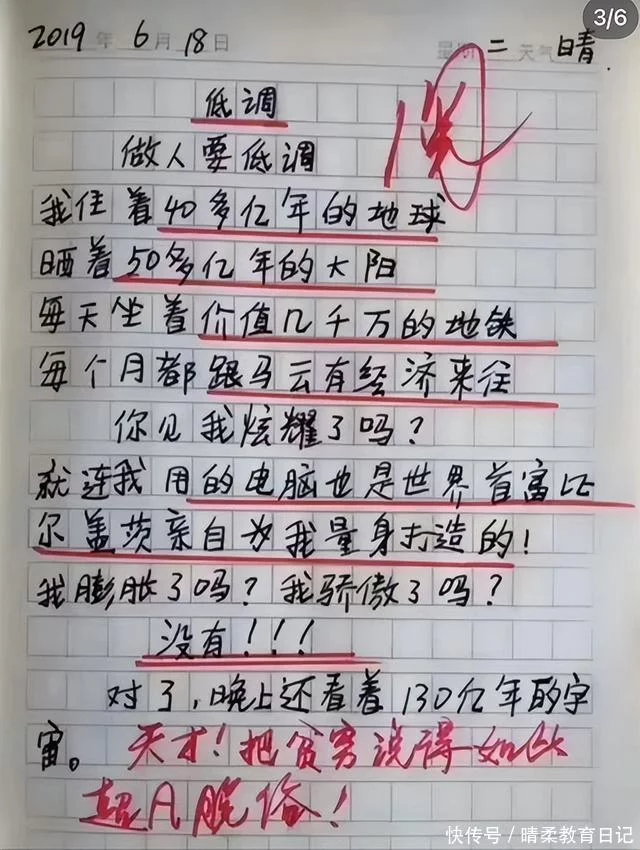 3/6
2019年 6月 18日 星期二 天气 晴.
低调
优
做人要低调
我住着40多亿年的地球
晒着50多亿年的大阳
每天坐着价值几千万的地铁
每个月都跟马云有经济来往
你见我炫耀了吗？
就连我用的电脑也是世界首富比
尔盖茨亲自为我量身打造的！
我膨胀了吗？我骄傲了吗？
没有！！！
对了，晚上还看着130亿年的宇
宙。天才！把贫穷说得如此
超凡脱俗！
快传号／晴柔教育日记